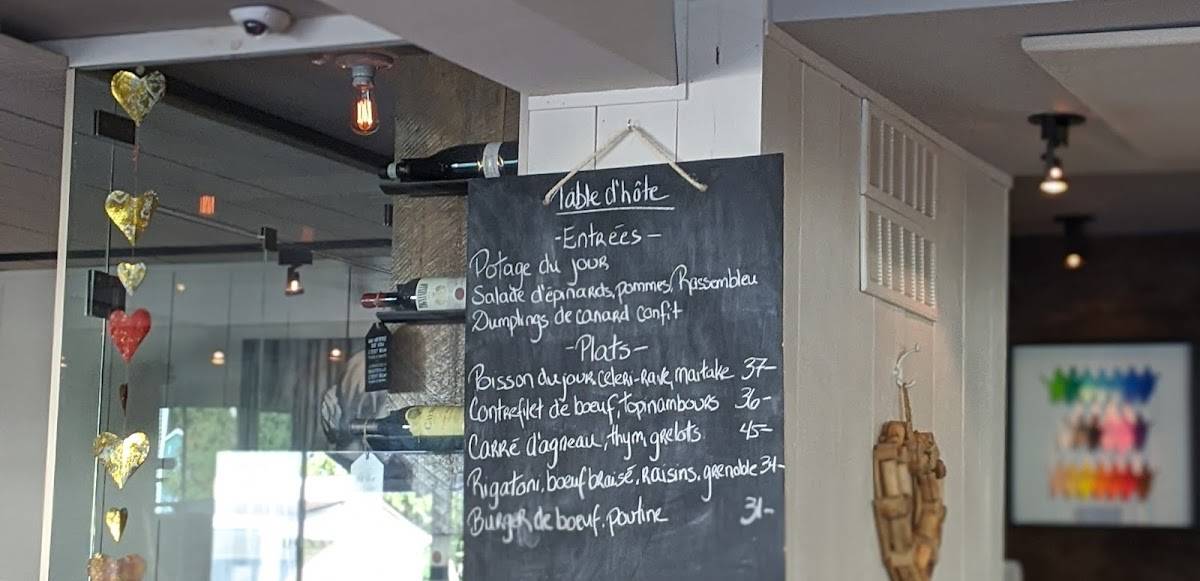 Table d'hôte
-Entrées-
Potage du jour
Salade d'épinards, pommes, Rassembleu
Dumplings de canard confit
-Plats-
Poisson du jour, céleri-rave, maitake 37-
Contrefilet de boeuf, topinambours 36-
Carré d'agneau, thym, grelots 45-
Rigatoni, boeuf braisé, raisins, grenoble 31-
Burger de boeuf, poutine 31-